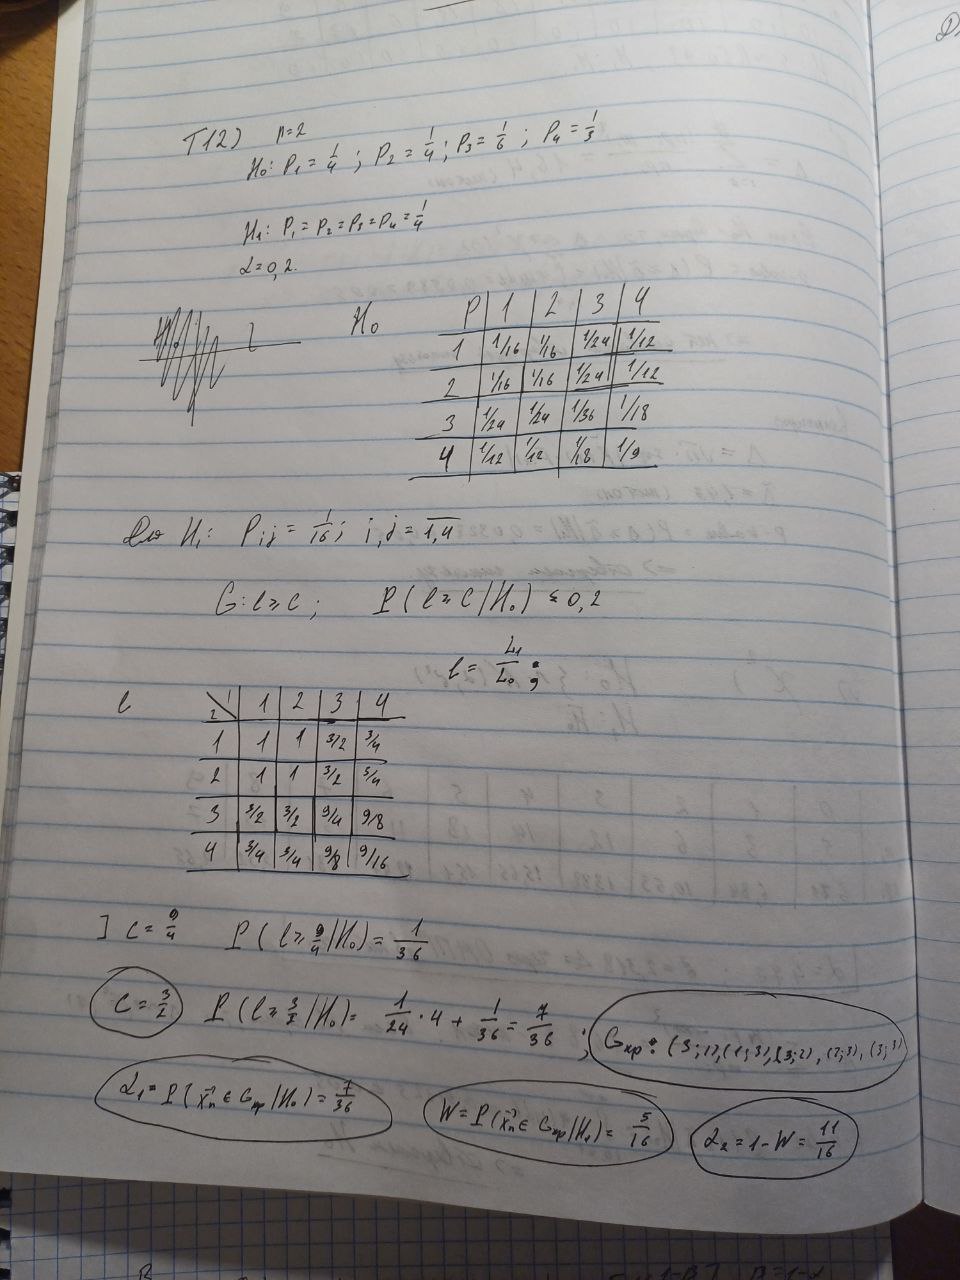 T12) n=2
H₀: P₁ = 1/4 ; P₂ = 1/4 ; P₃ = 1/6 ; P₄ = 1/3
H₁: P₁ = P₂ = P₃ = P₄ = 1/4
α = 0,2.
H₀
P 1 2 3 4
1 1/16 1/16 1/24 1/12
2 1/16 1/16 1/24 1/12
3 1/24 1/24 1/36 1/18
4 1/12 1/12 1/18 1/9
Для H₁: Pᵢⱼ = 1/16 ; i,j = 1,4
G: l ≥ c ; P(l ≥ c / H₀) ≤ 0,2
l = L₁/L₀ ;
l
2 \ 1 1 2 3 4
1 1 1 3/2 3/4
2 1 1 3/2 3/4
3 3/2 3/2 9/4 9/8
4 3/4 3/4 9/8 9/16
] c = 9/4 P(l ≥ 9/4 / H₀) = 1/36
c = 3/2 P(l ≥ 3/2 / H₀) = 1/24 · 4 + 1/36 = 7/36 ; Gкр: (3;1),(1;3),(3;2),(2;3),(3;3)
α₁ = P(x⃗ₙ ∈ Gкр / H₀) = 7/36 W = P(x⃗ₙ ∈ Gкр / H₁) = 5/16 α₂ = 1 - W = 11/16